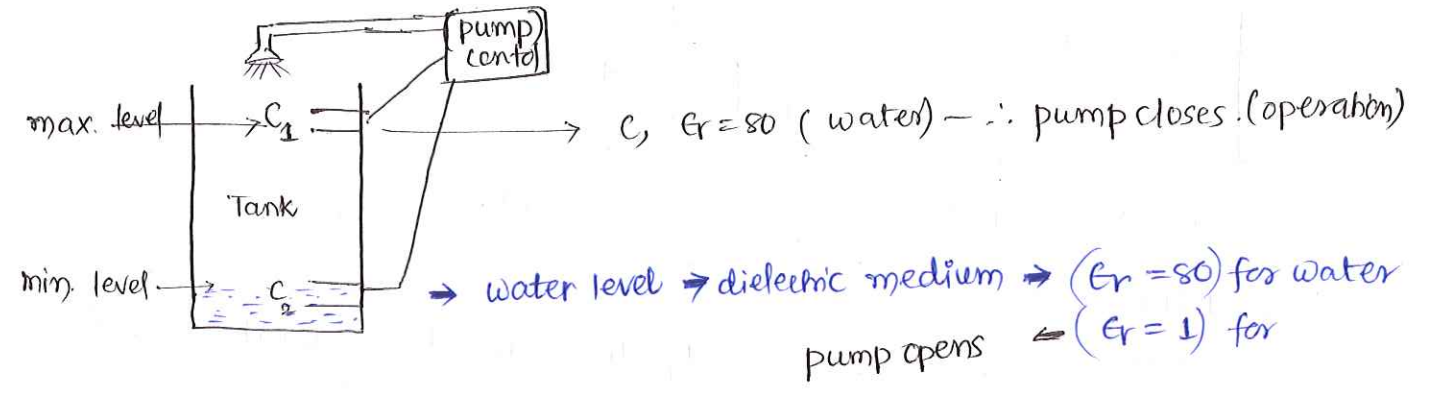 pump
contol
max. level
C1
C, εr = 80 (water) – ∴ pump closes. (operation)
Tank
min. level
C2
→ water level → dielectric medium → (εr = 80) for water
pump opens ← (εr = 1) for